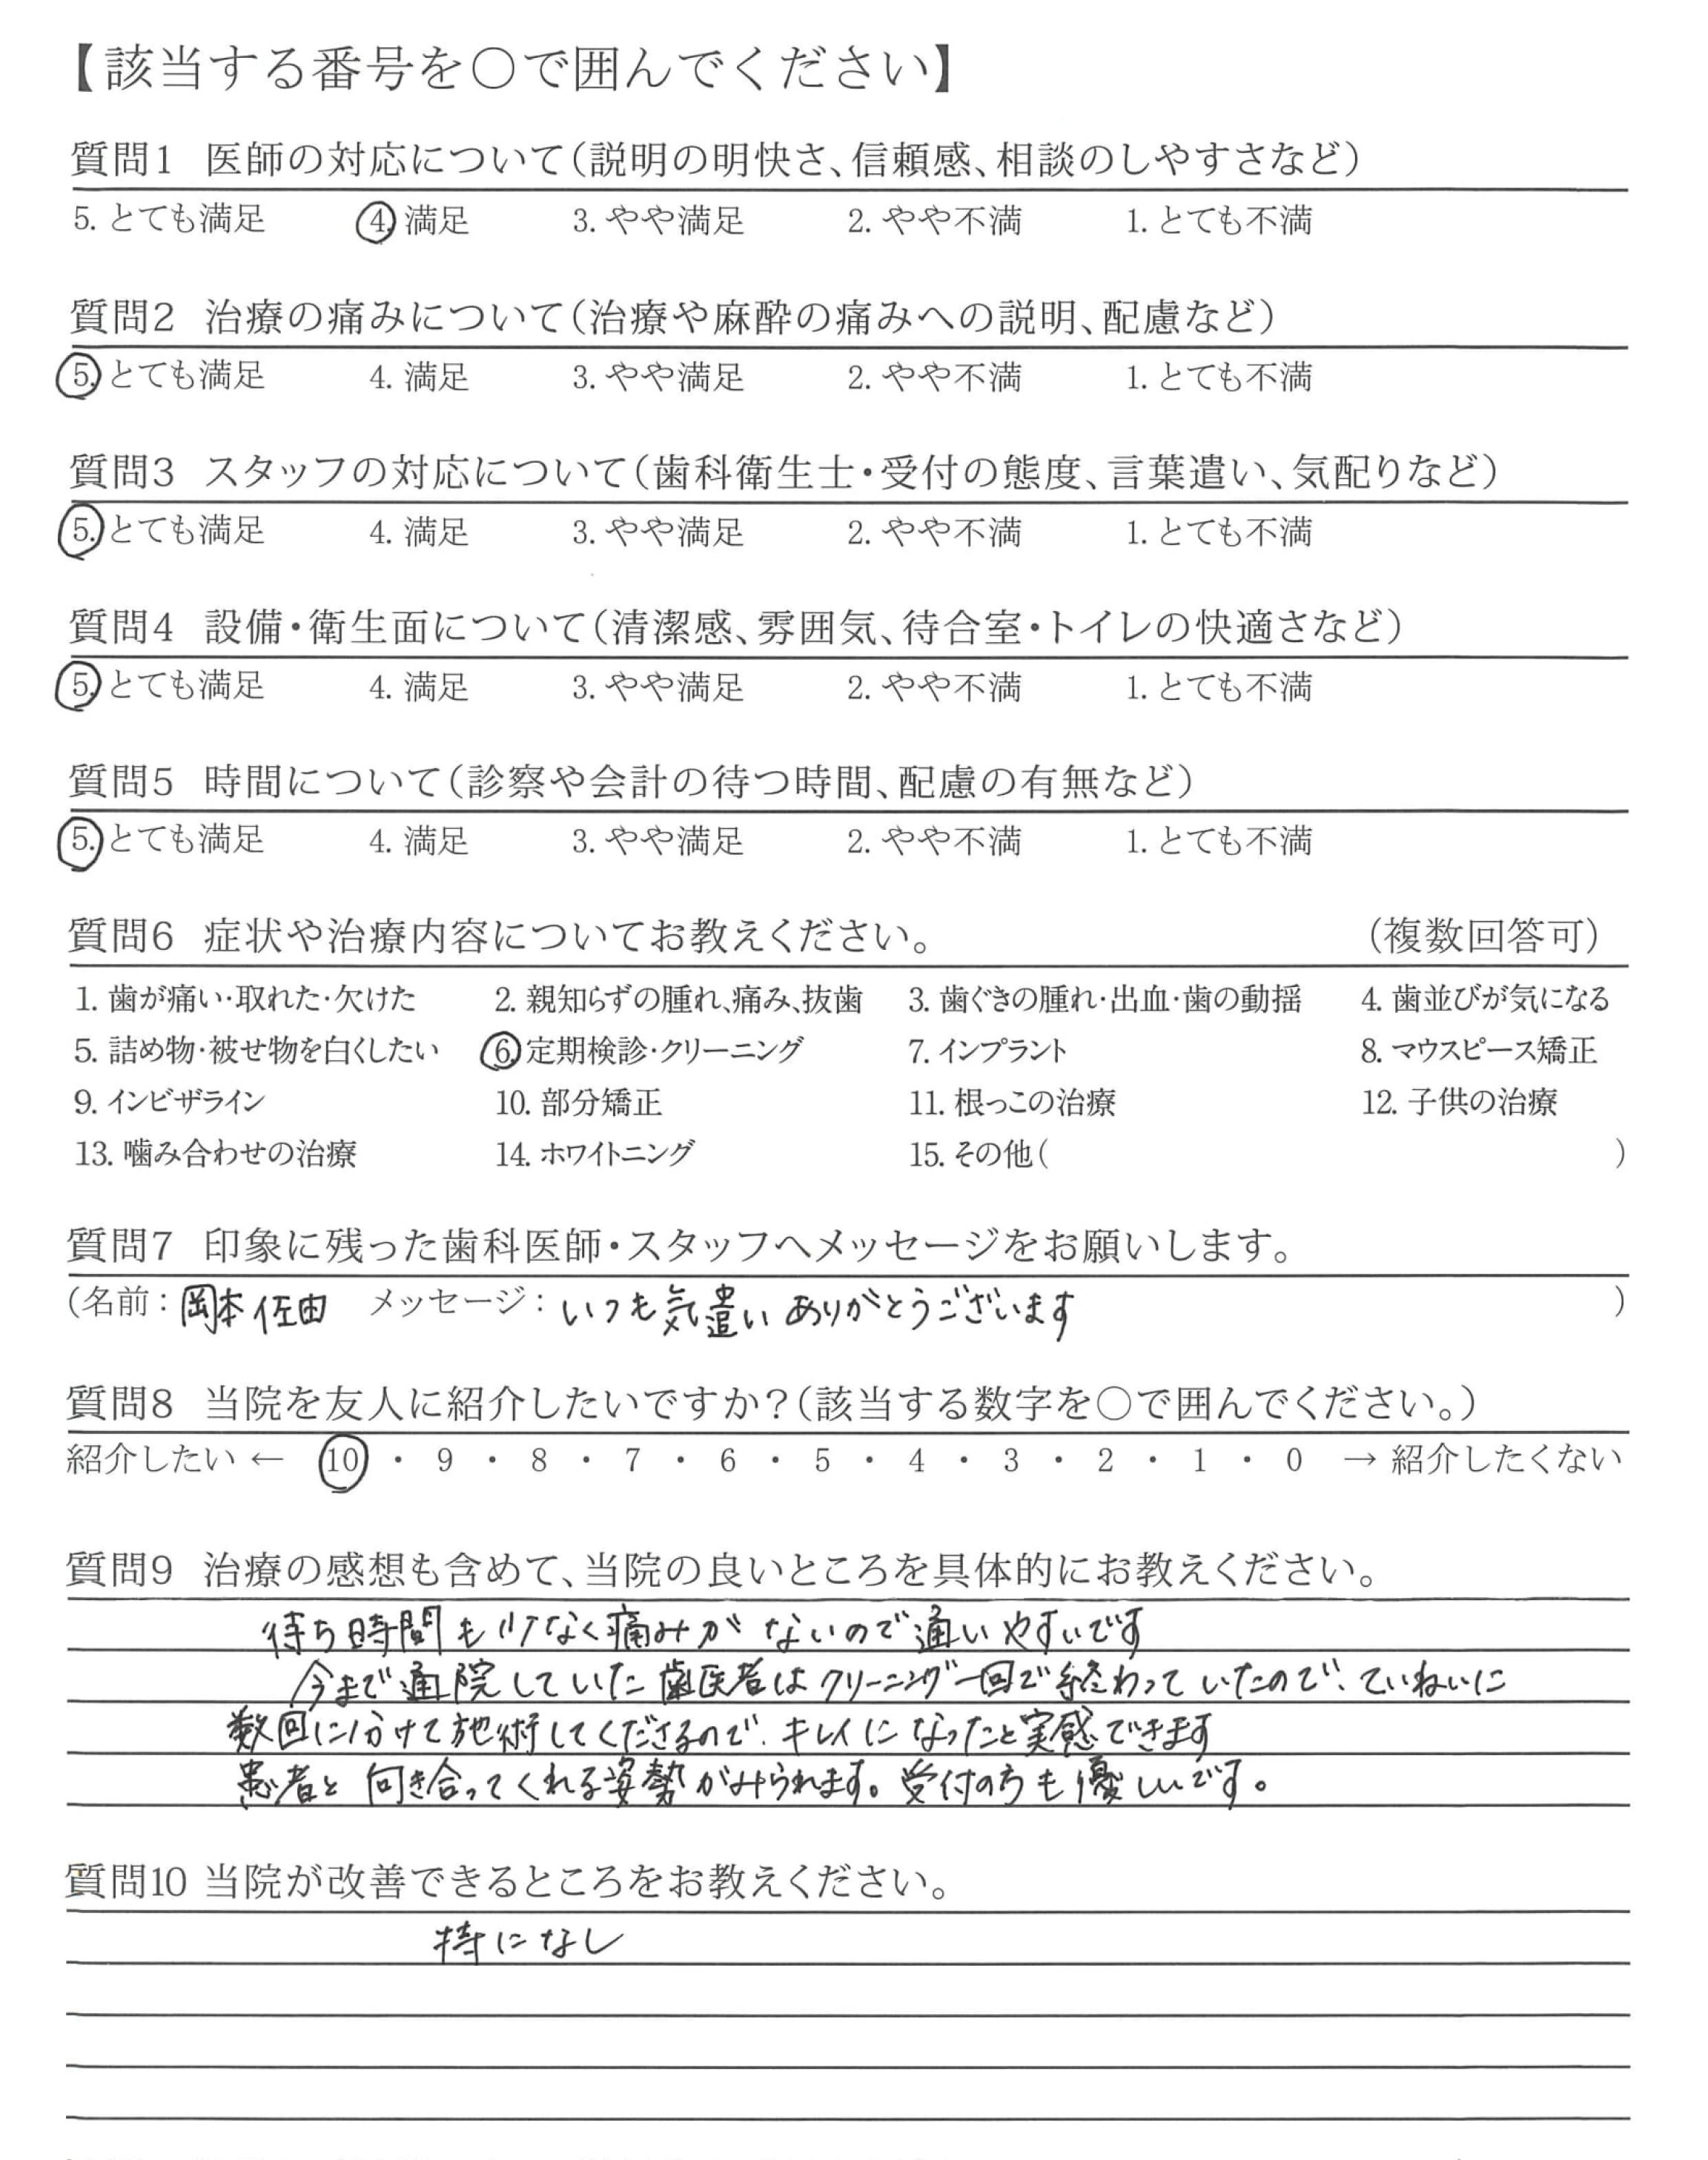 【該当する番号を〇で囲んでください】
質問1 医師の対応について(説明の明快さ、信頼感、相談のしやすさなど)
5. とても満足 4. 満足 3. やや満足 2. やや不満 1. とても不満
質問2 治療の痛みについて(治療や麻酔の痛みへの説明、配慮など)
5. とても満足 4. 満足 3. やや満足 2. やや不満 1. とても不満
質問3 スタッフの対応について(歯科衛生士・受付の態度、言葉遣い、気配りなど)
5. とても満足 4. 満足 3. やや満足 2. やや不満 1. とても不満
質問4 設備・衛生面について(清潔感、雰囲気、待合室・トイレの快適さなど)
5. とても満足 4. 満足 3. やや満足 2. やや不満 1. とても不満
質問5 時間について(診察や会計の待つ時間、配慮の有無など)
5. とても満足 4. 満足 3. やや満足 2. やや不満 1. とても不満
質問6 症状や治療内容についてお教えください。 (複数回答可)
1. 歯が痛い・取れた・欠けた 2. 親知らずの腫れ、痛み、抜歯 3. 歯ぐきの腫れ・出血・歯の動揺 4. 歯並びが気になる
5. 詰め物・被せ物を白くしたい 6. 定期検診・クリーニング 7. インプラント 8. マウスピース矯正
9. インビザライン 10. 部分矯正 11. 根っこの治療 12. 子供の治療
13. 噛み合わせの治療 14. ホワイトニング 15. その他( )
質問7 印象に残った歯科医師・スタッフへメッセージをお願いします。
(名前:岡本佐由 メッセージ:いつも気遣いありがとうございます )
質問8 当院を友人に紹介したいですか?(該当する数字を〇で囲んでください。)
紹介したい ← 10 ・ 9 ・ 8 ・ 7 ・ 6 ・ 5 ・ 4 ・ 3 ・ 2 ・ 1 ・ 0 → 紹介したくない
質問9 治療の感想も含めて、当院の良いところを具体的にお教えください。
待ち時間も少なく痛みがないので通いやすいです
今まで通院していた歯医者はクリーニング一回で終わっていたので、ていねいに
数回に分けて施術してくださるので、キレイになったと実感できます
患者と向き合ってくれる姿勢がみられます。受付の方も優しいです。
質問10 当院が改善できるところをお教えください。
特になし